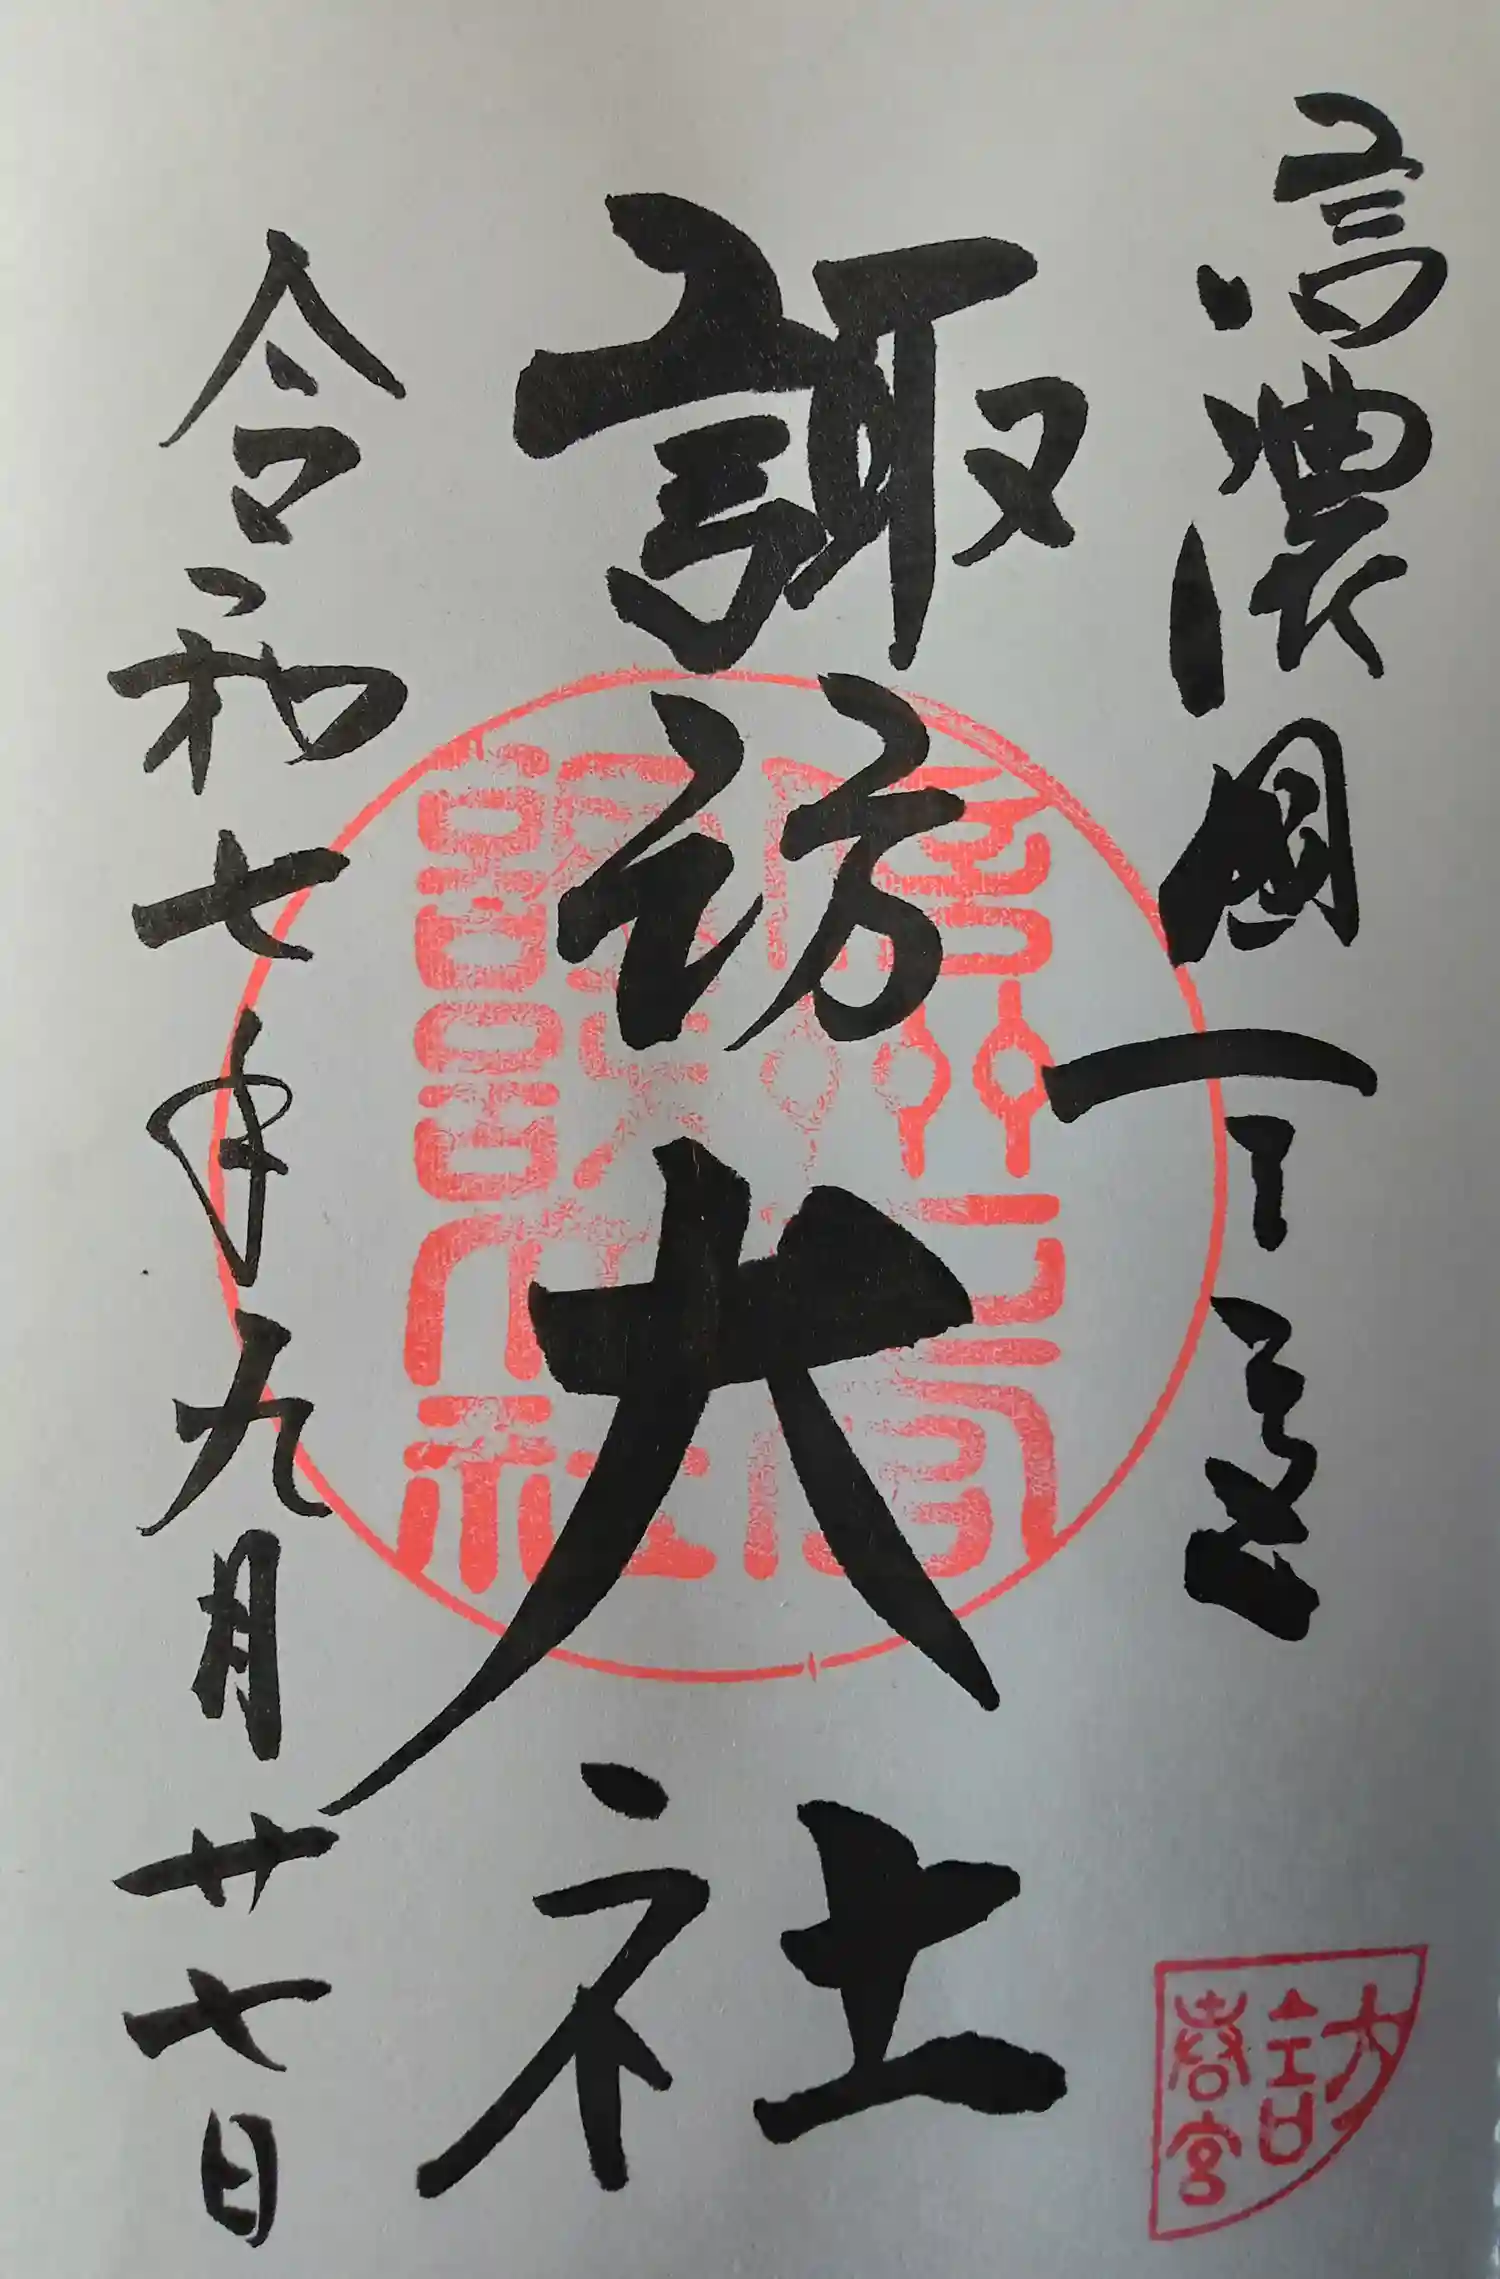 信濃國一之宮
諏訪大社
令和七年九月廿七日
訪詣
春宮